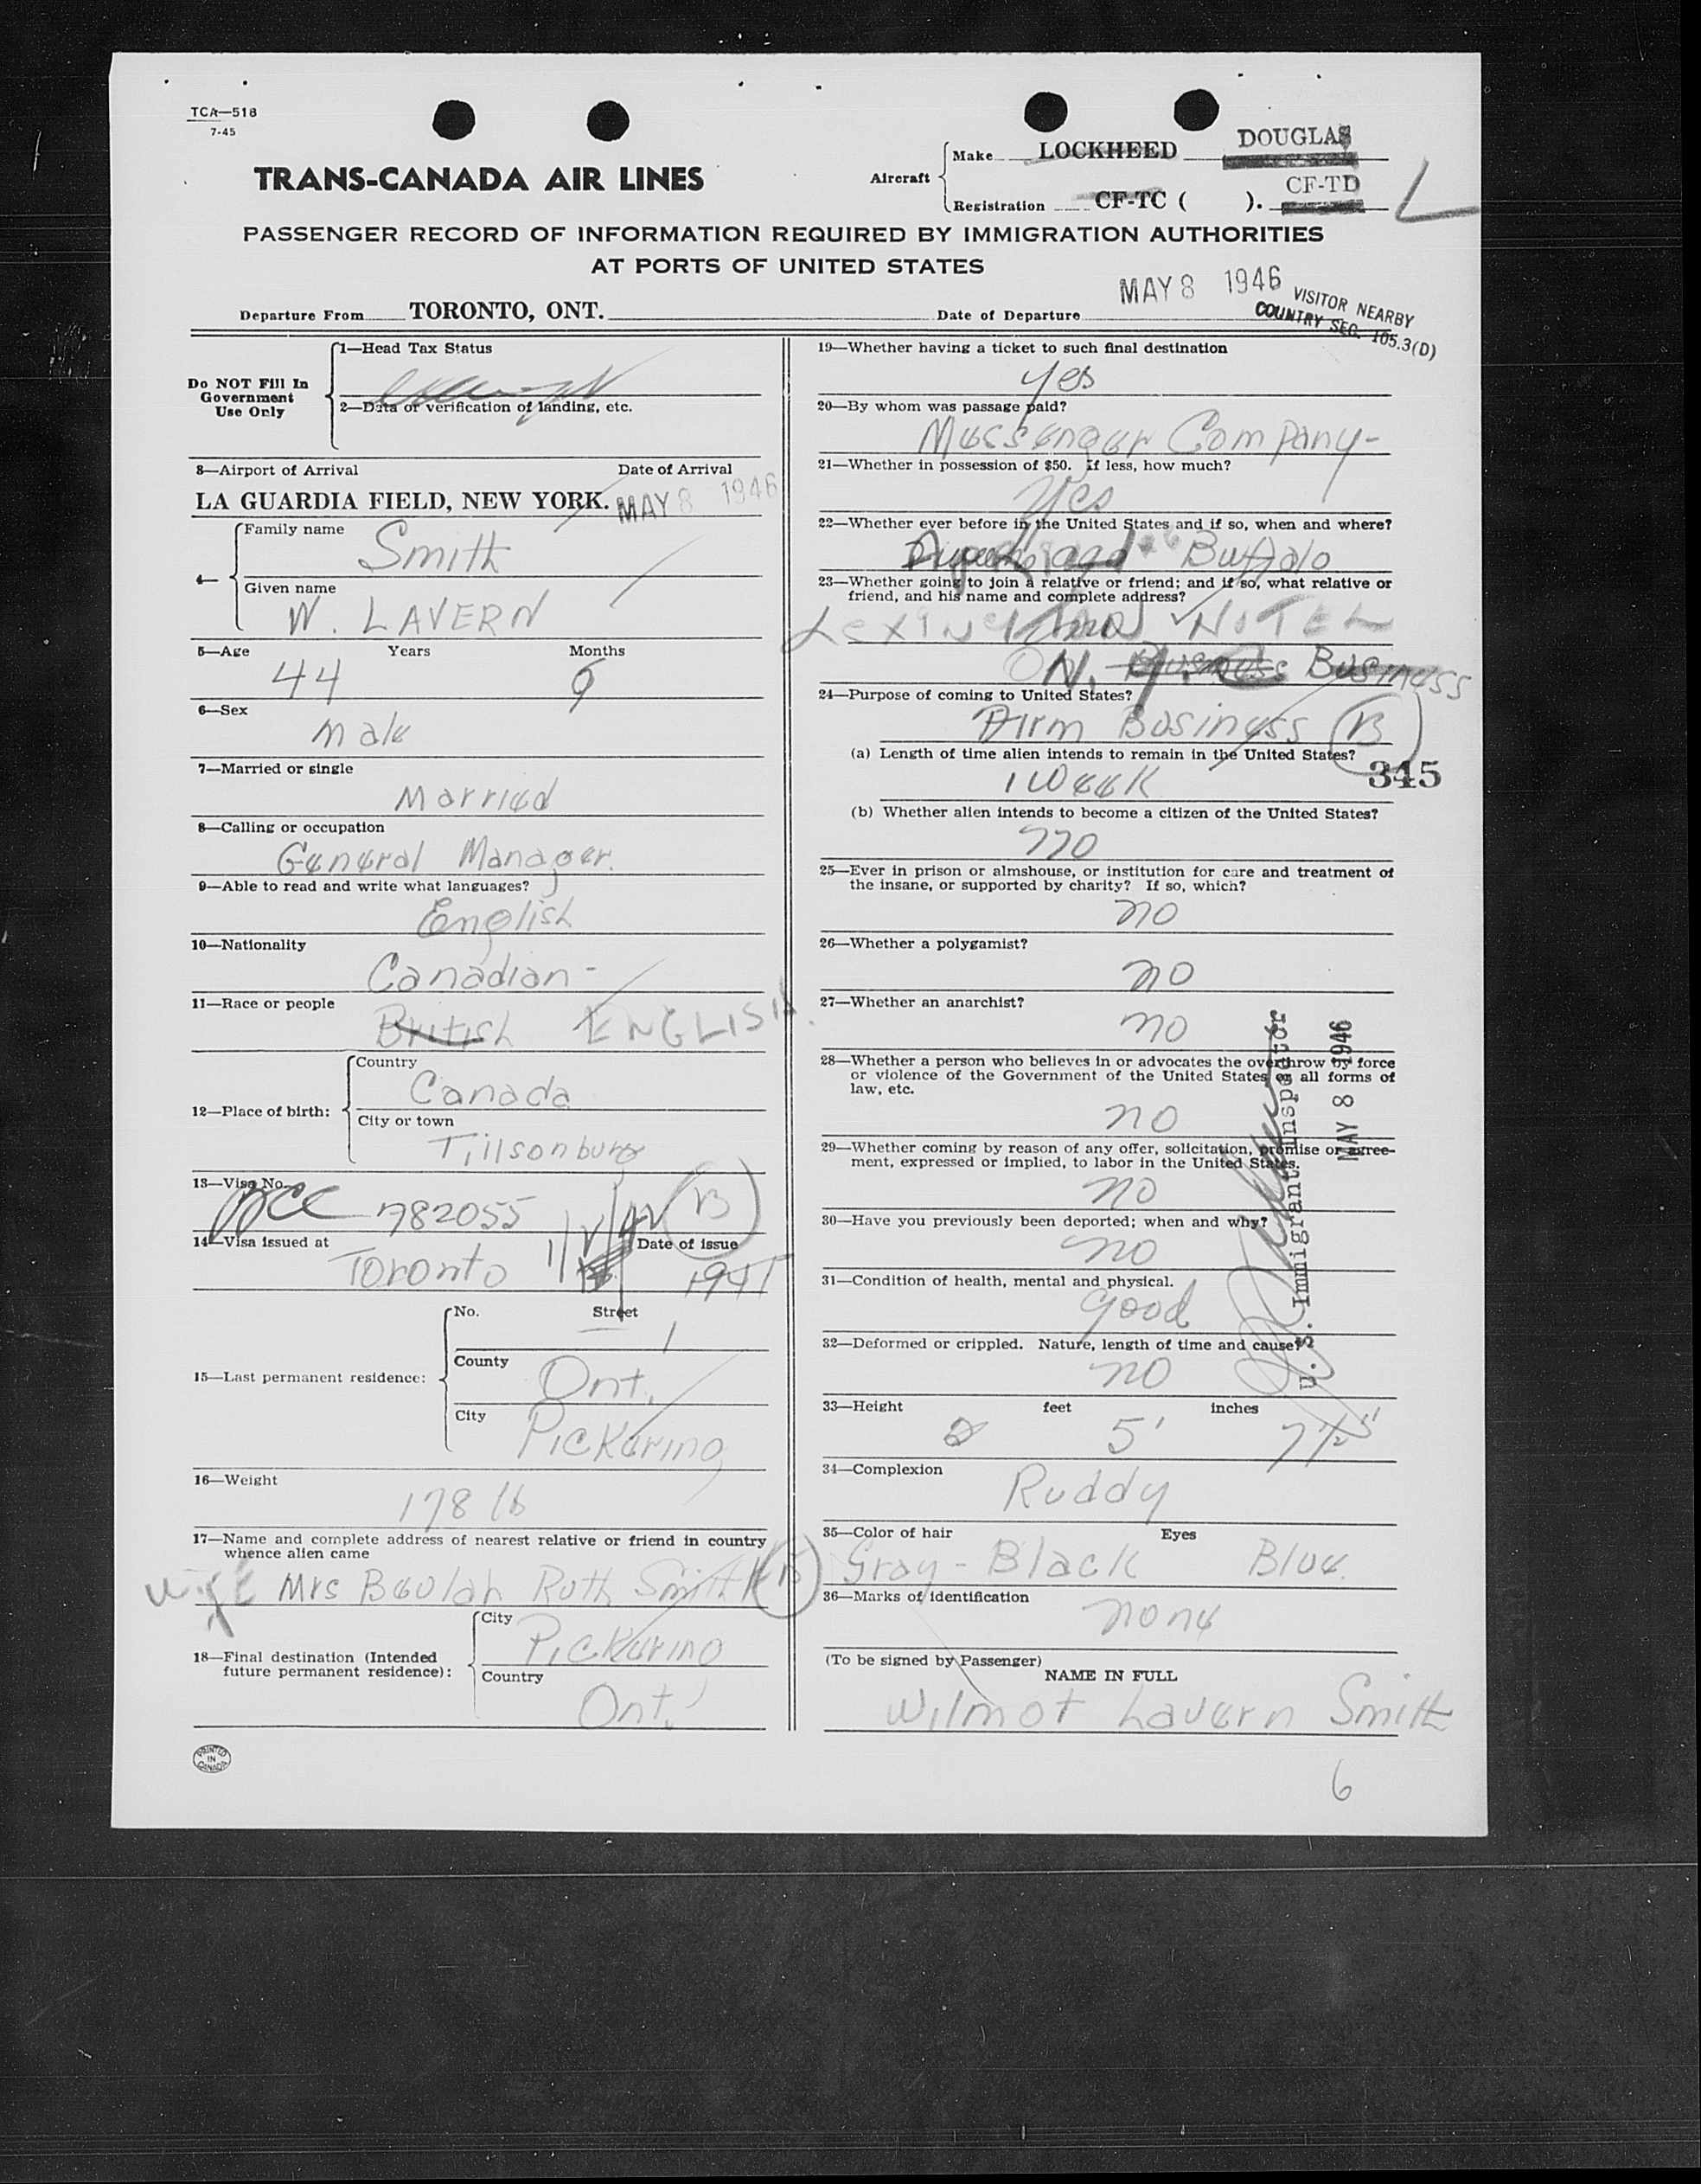 TCA—518
7-45
TRANS-CANADA AIR LINES
Aircraft
Make LOCKHEED DOUGLAS
Registration CF-TC ( ). CF-TD
PASSENGER RECORD OF INFORMATION REQUIRED BY IMMIGRATION AUTHORITIES
AT PORTS OF UNITED STATES
MAY 8 1946
VISITOR NEARBY
COUNTRY SEC. 165.3(D)
Departure From TORONTO, ONT. Date of Departure
Do NOT Fill In
Government
Use Only
1—Head Tax Status
2—Data or verification of landing, etc.
3—Airport of Arrival Date of Arrival
LA GUARDIA FIELD, NEW YORK. MAY 8 1946
4—
Family name
Smith
Given name
W. LAVERN
5—Age Years Months
44 9
6—Sex
Male
7—Married or single
Married
8—Calling or occupation
General Manager.
9—Able to read and write what languages?
English
10—Nationality
Canadian-
11—Race or people
British ENGLISH.
12—Place of birth:
Country
Canada
City or town
Tillsonburg
13—Visa No.
BCC 782055 B
14—Visa issued at Date of issue
Toronto 1941
15—Last permanent residence:
No. Street
County
Ont.
City
Pickering
16—Weight
178 lb
17—Name and complete address of nearest relative or friend in country
whence alien came
wife Mrs Beulah Ruth Smith B
18—Final destination (Intended
future permanent residence):
City
Pickering
Country
Ont.
PRINTED
IN
CANADA
19—Whether having a ticket to such final destination
yes
20—By whom was passage paid?
Messenger Company-
21—Whether in possession of $50. If less, how much?
Yes
22—Whether ever before in the United States and if so, when and where?
Buffalo
23—Whether going to join a relative or friend; and if so, what relative or
friend, and his name and complete address?
HOTEL
N.Y.C. Business Business
24—Purpose of coming to United States?
Firm Business B
(a) Length of time alien intends to remain in the United States?
345
1 Week
(b) Whether alien intends to become a citizen of the United States?
no
25—Ever in prison or almshouse, or institution for care and treatment of
the insane, or supported by charity? If so, which?
no
26—Whether a polygamist?
no
27—Whether an anarchist?
no
28—Whether a person who believes in or advocates the overthrow by force
or violence of the Government of the United States or all forms of
law, etc.
no
29—Whether coming by reason of any offer, solicitation, promise or agree-
ment, expressed or implied, to labor in the United States.
no
30—Have you previously been deported; when and why?
no
31—Condition of health, mental and physical.
good
32—Deformed or crippled. Nature, length of time and cause?
no
U. S. Immigrant Inspector
MAY 8 1946
33—Height feet inches
5' 7½"
34—Complexion
Ruddy
35—Color of hair Eyes
Gray-Black Blue.
36—Marks of identification
none
(To be signed by Passenger)
NAME IN FULL
Wilmot Lavern Smith
6